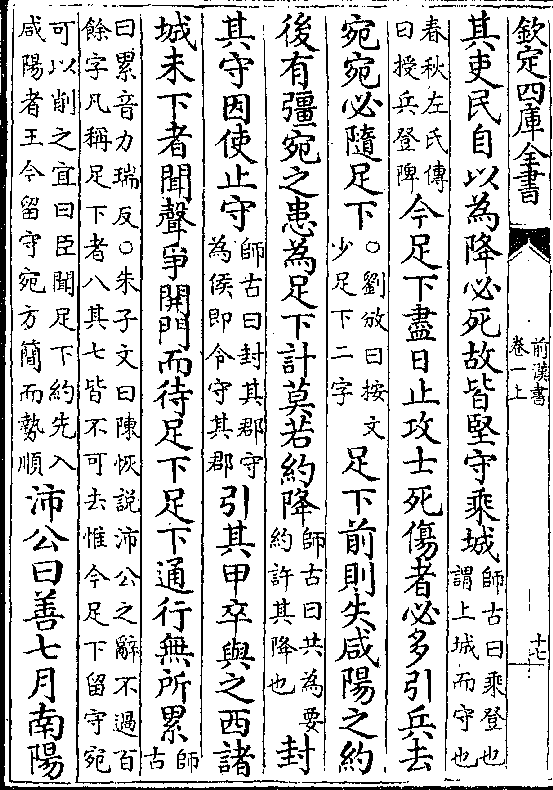 欽定四庫全書
前漢書
卷一上
十七
其吏民自以為降必死故皆堅守乘城
師古曰乘登也
謂上城而守也
春秋左氏傳
曰授兵登陴
今足下盡日止攻士死傷者必多引兵去
宛宛必隨足下
○劉攽曰按文
少足下二字
足下前則失咸陽之約
後有彊宛之患為足下計莫若約降
師古曰共為要
約許其降也
封
其守因使止守
師古曰封其郡守
為侯即令守其郡
引其甲卒與之西諸
城未下者聞聲爭開門而待足下足下通行無所累
師
古
曰累音力瑞反○朱子文曰陳恢説沛公之辭不過百
餘字凡稱足下者八其七皆不可去惟今足下留守宛
可以削之宜曰臣聞足下約先入
咸陽者王今留守宛方簡而勢順
沛公曰善七月南陽